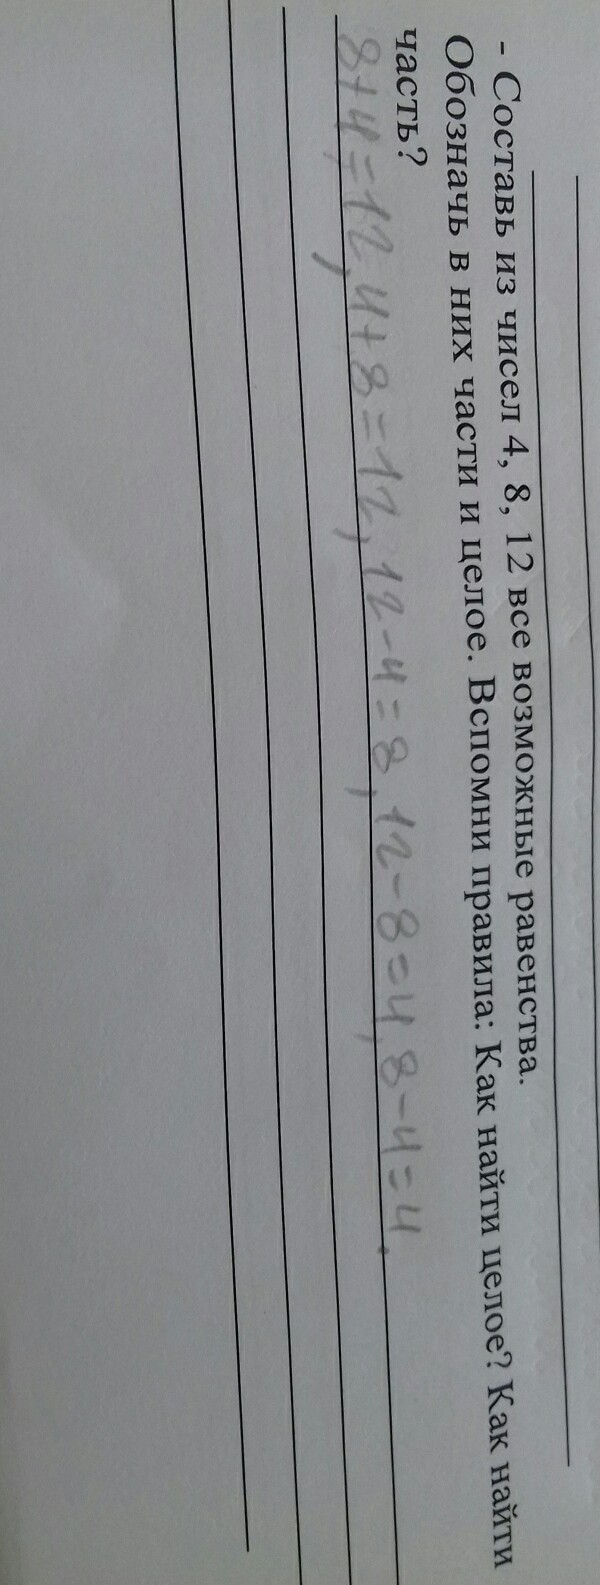 - Составь из чисел 4, 8, 12 все возможные равенства.
Обозначь в них части и целое. Вспомни правила: Как найти целое? Как найти
часть?
8+4=12, 4+8=12, 12-4=8, 12-8=4, 8-4=4.